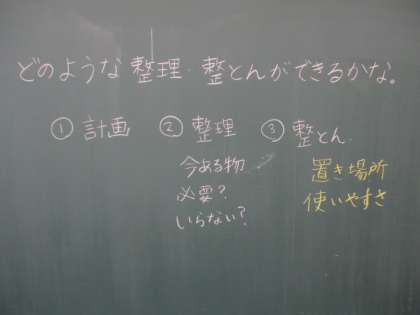 どのような整理・整とんができるかな。
① 計画 ② 整理 ③ 整とん
今ある物
必要？
いらない？
置き場所
使いやすさ